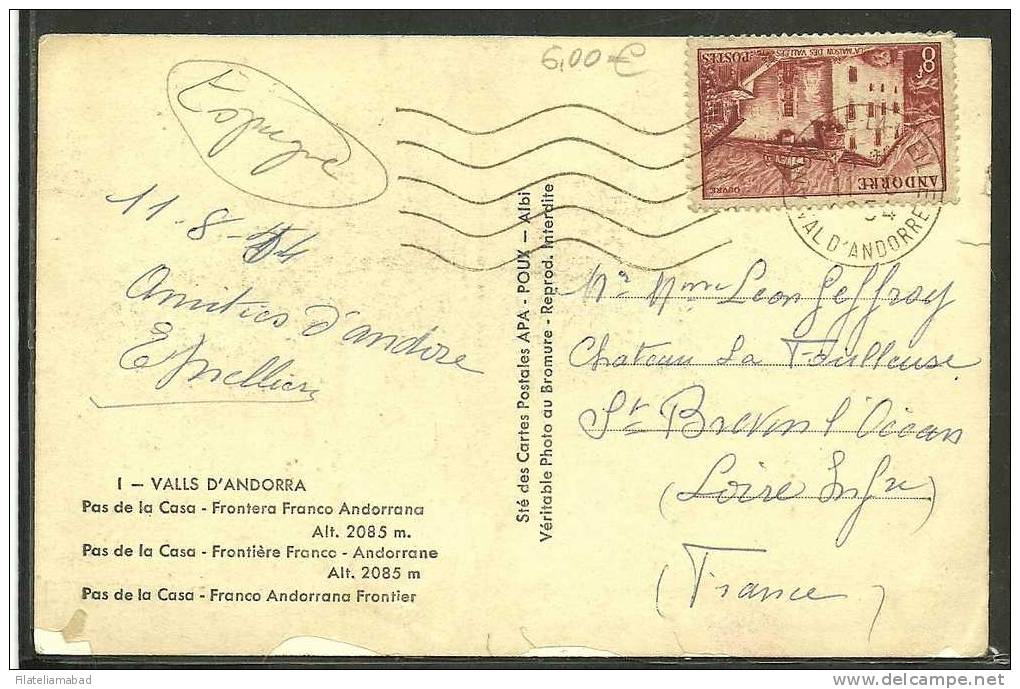 6,00 €
Espagne
11-8-54
Amitiés d'andore
I – VALLS D'ANDORRA
Pas de la Casa - Frontera Franco Andorrana
Alt. 2085 m.
Pas de la Casa - Frontière Franco - Andorrane
Alt. 2085 m
Pas de la Casa - Franco Andorrana Frontier
Sté des Cartes Postales APA - POUX – Albi
Véritable Photo au Bromure - Reprod. Interdite
8F
LA MAISON DES VALLÉES
POSTES
ANDORRE
OUVRÉ
VAL D'ANDORRE
Mr Mme Leon Geffroy
Chateau La
St Brevin l'Océan
(Loire Infre)
(France)
Filateliamabad
delcampe.net